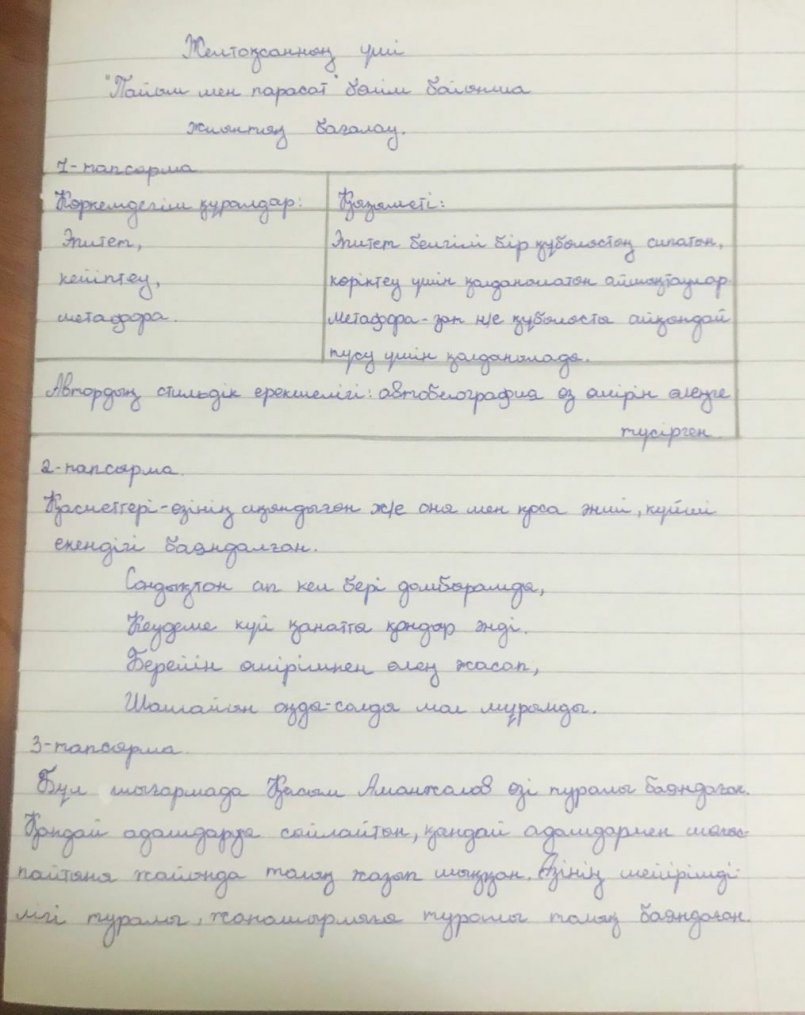 Желтоқсанның үші
"Пайым мен парасат" бөлім бойынша
жиынтық бағалау.
1-тапсырма
Көркемдегіш құралдар:
Эпитет,
кейіптеу,
метафора.
Қызметі:
Эпитет белгілі бір құбылыстың сипатын,
көріктеу үшін қолданылатын айшықтаулар
Метафора-зат н/е құбылысты айқындай
түсу үшін қолданылады.
Автордың стильдік ерекшелігі: автобеография өз өмірін өлеңге
түсірген.
2-тапсырма.
Қасиеттері-өзінің ақындығын ж/е оны мен қоса әнші, күйші
екендігі баяндалған.
Сондықтан ап кел бері домбырамды,
Кеудеме күй қанатты қондыр әнді.
Берейін өмірімнен өлең жасап,
Шашайын оңды-солды мол мұрамды.
3-тапсырма.
Бұл шығармада Қасым Аманжолов өзі туралы баяндаған.
Қандай адамдарды сыйлайтын, қандай адамдармен
жайында толық жазып шыққан. Өзінің мейірімді-
лігі туралы, жанашырлығы туралы толық баяндаған.